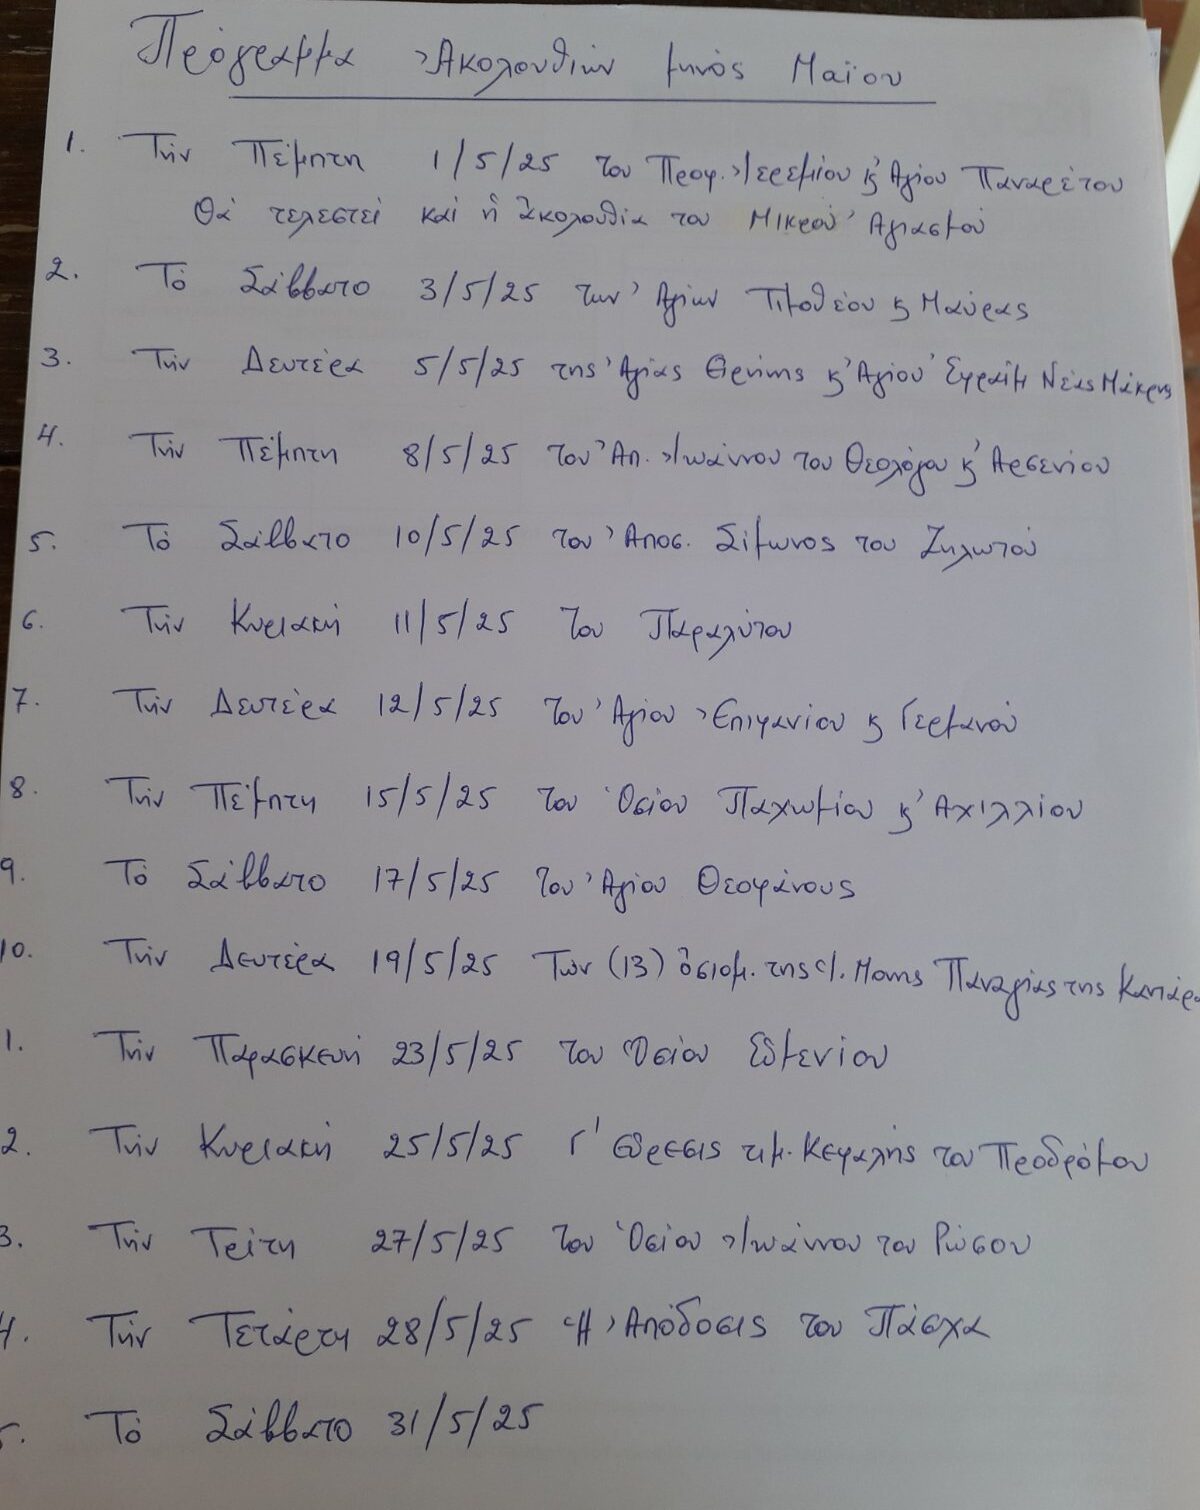 Πρόγραμμα Ἀκολουθιῶν μηνός Μαΐου
1. Τήν Πέμπτη 1/5/25 του Προφ. Ἰερεμίου κ' Ἁγίου Παναρέτου
Θά τελεστεί καί ἡ ἀκολουθία του Μικροῦ Ἁγιασμοῦ
2. Τό Σάββατο 3/5/25 των Ἁγίων Τιμοθέου κ Μαύρας
3. Τήν Δευτέρα 5/5/25 της Ἁγίας Εἰρήνης κ' Ἁγίου Ἐφραίμ Νέας Μάκρης
4. Τήν Πέμπτη 8/5/25 του Ἀπ. Ἰωάννου του Θεολόγου κ' Ἀρσενίου
5. Τό Σάββατο 10/5/25 του Ἀποσ. Σίμωνος του Ζηλωτοῦ
6. Τήν Κυριακή 11/5/25 Του Παραλύτου
7. Τήν Δευτέρα 12/5/25 του Ἁγίου Ἐπιφανίου κ Γερμανοῦ
8. Τήν Πέμπτη 15/5/25 του Ὁσίου Παχωμίου κ' Ἀχιλλίου
9. Τό Σάββατο 17/5/25 του Ἁγίου Θεοφάνους
10. Τήν Δευτέρα 19/5/25 Των (13) ὁσιομ. της Ἱ. Μονης Παναγίας της Καντάρα
1. Τήν Παρασκευή 23/5/25 του Ὁσίου Εὐμενίου
2. Τήν Κυριακή 25/5/25 Γ' εὕρεσις τιμ. Κεφαλῆς του Προδρόμου
3. Τήν Τρίτη 27/5/25 του Ὁσίου Ἰωάννου του Ρώσου
4. Τήν Τετάρτη 28/5/25 Ἡ Ἀπόδοσις του Πάσχα
5. Τό Σάββατο 31/5/25